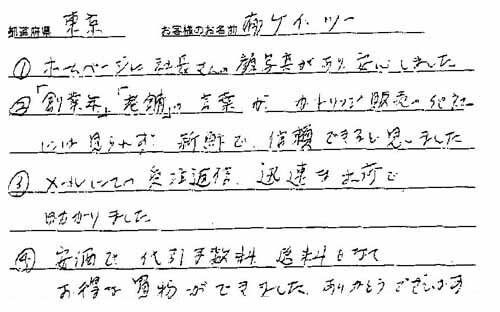 都道府県 東京 お客様のお名前 ㈲ケイ・ツー
① ホームページに社長さんの顔写真があり、安心しました
② 「創業年」「老舗」の言葉が、カートリッジ販売の他社
には見られず、新鮮で、信頼できると思いました
③ メールにての受注返信、迅速な出荷で
助かりました
④ 安価で 代引手数料 送料もなくて
お得な買物ができました。ありがとうございます